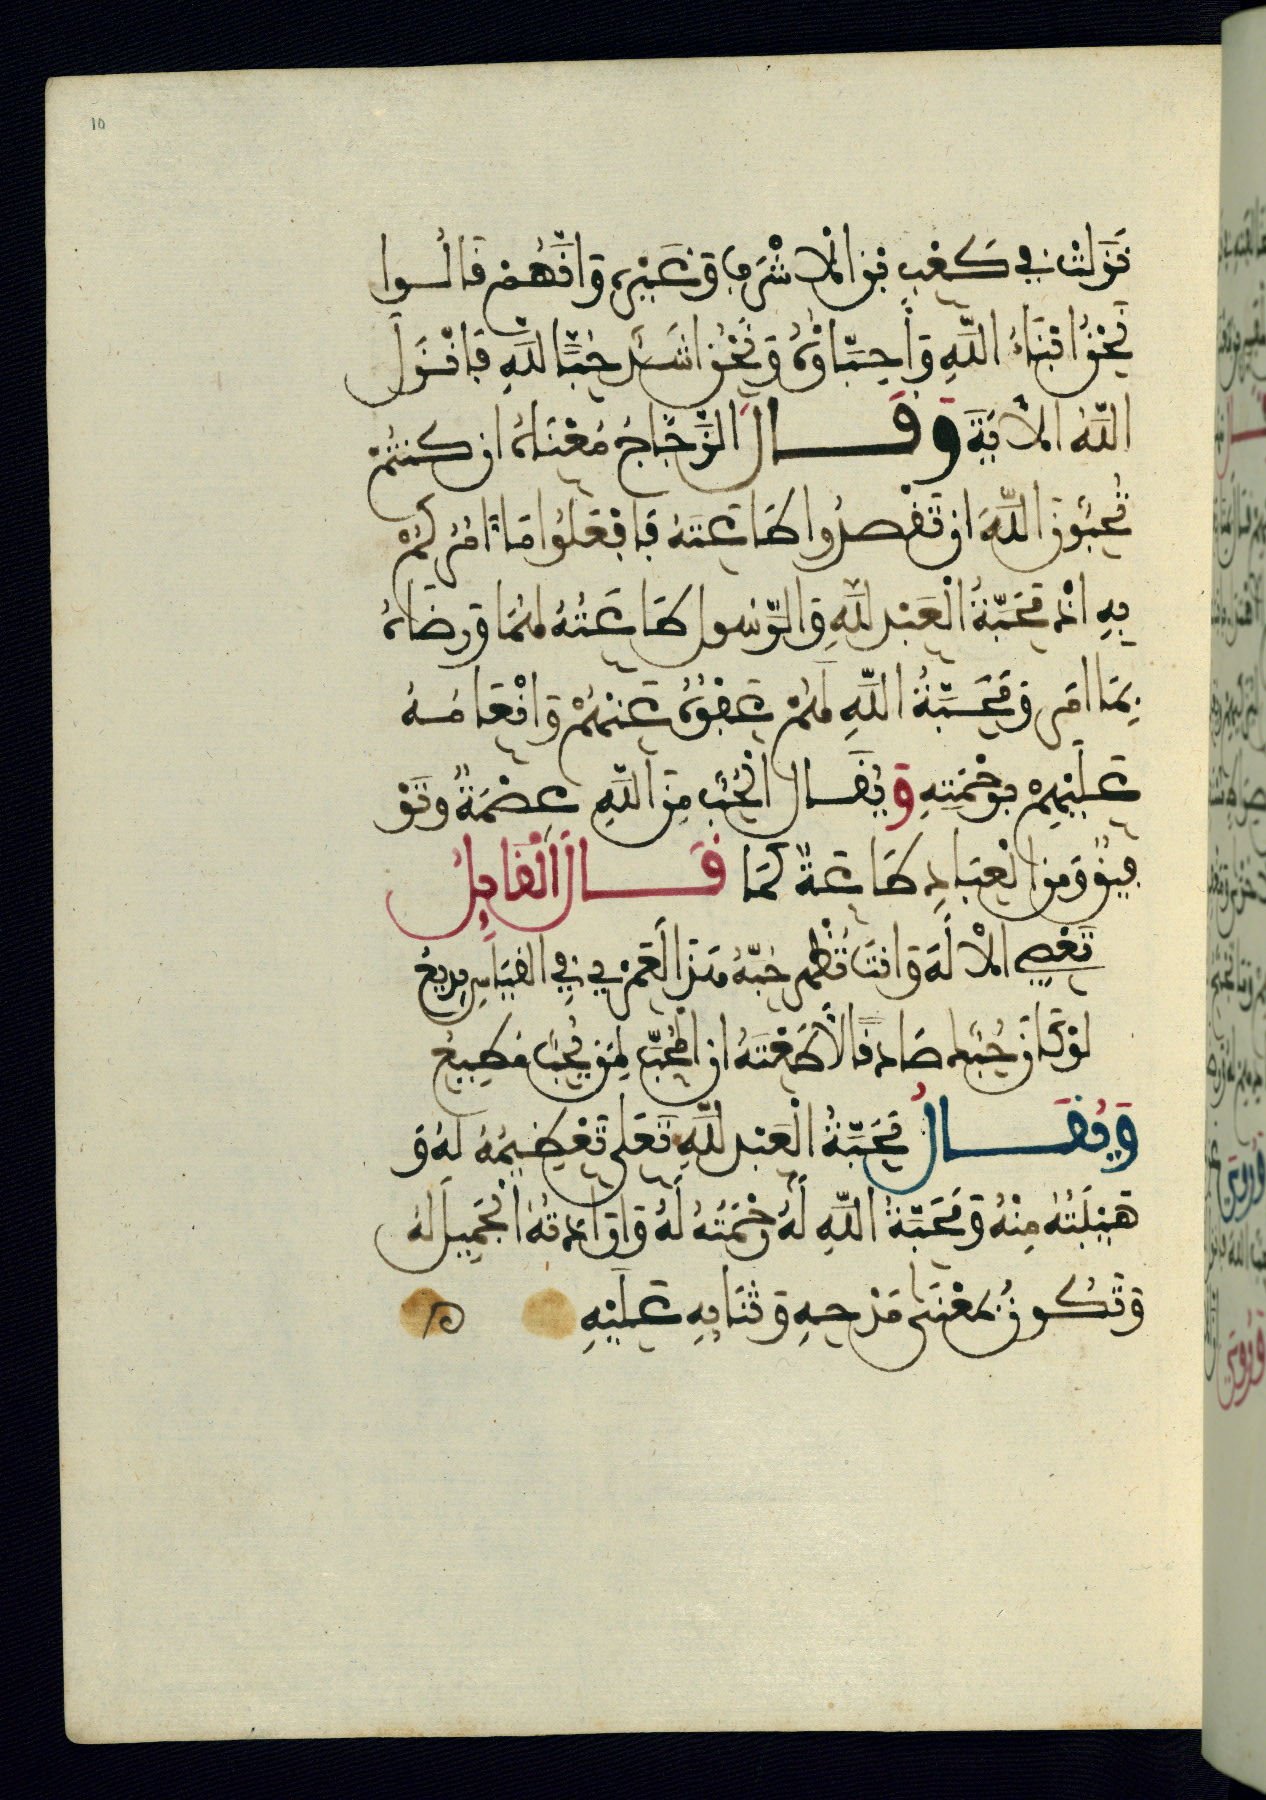 نَزَلَتْ فِي كَعْبِ بْنِ الْاَشْرَفِ وَغَيْرِهِ وَاَنَّهُمْ قَالُوا
نَحْنُ اَبْنَاءُ اللَّهِ وَأَحِبَّاؤُهُ وَنَحْنُ اَشَدُّ حُبًّا لِلَّهِ فَاَنْزَلَ
اللَّهُ الْاَيَةَ وَقَالَ الزَّجَّاجُ مَعْنَاهُ اِن كُنتُمْ
تُحِبُّونَ اللَّهَ اَن تَقْصِدُوا طَاعَتَهُ فَافْعَلُوا مَا أَمَرَكُمْ
بِهِ اِذْ مَحَبَّةُ الْعَبْدِ لِلَّهِ وَالرَّسُولِ طَاعَتُهُ لَهُمَا وَرِضَاهُ
بِمَا اَمَرَ وَمَحَبَّةُ اللَّهِ لَهُمْ عَفْوُهُ عَنْهُمْ وَاِنْعَامُهُ
عَلَيْهِمْ بِرَحْمَتِهِ وَيُقَالُ الْحُبُّ مِنَ اللَّهِ عِصْمَةٌ وَتَوْ
فِيقٌ وَمِنَ الْعِبَادِ طَاعَةٌ كَمَا قَالَ الْقَايِلُ
تَعْصِي الْاِلَهَ وَاَنتَ تُظْهِرُ حُبَّهُ هَذَا لَعَمْرِي فِي الْقِيَاسِ بَدِيعُ
لَوْ كَانَ حُبُّكَ صَادِقًا لَأَطَعْتَهُ اِنَّ الْمُحِبَّ لِمَنْ يُحِبُّ مُطِيعُ
وَيُقَالُ مَحَبَّةُ الْعَبْدِ لِلَّهِ تَعَلَى تَعْظِيمُهُ لَهُ وَ
هَيْبَتُهُ مِنْهُ وَمَحَبَّةُ اللَّهِ لَهُ رَحْمَتُهُ لَهُ وَاِرَادَتُهُ الْجَمِيلَ لَهُ
وَتَكُونُ بِمَعْنَى مَدْحِهِ وَثَنَايِهِ عَلَيْهِ